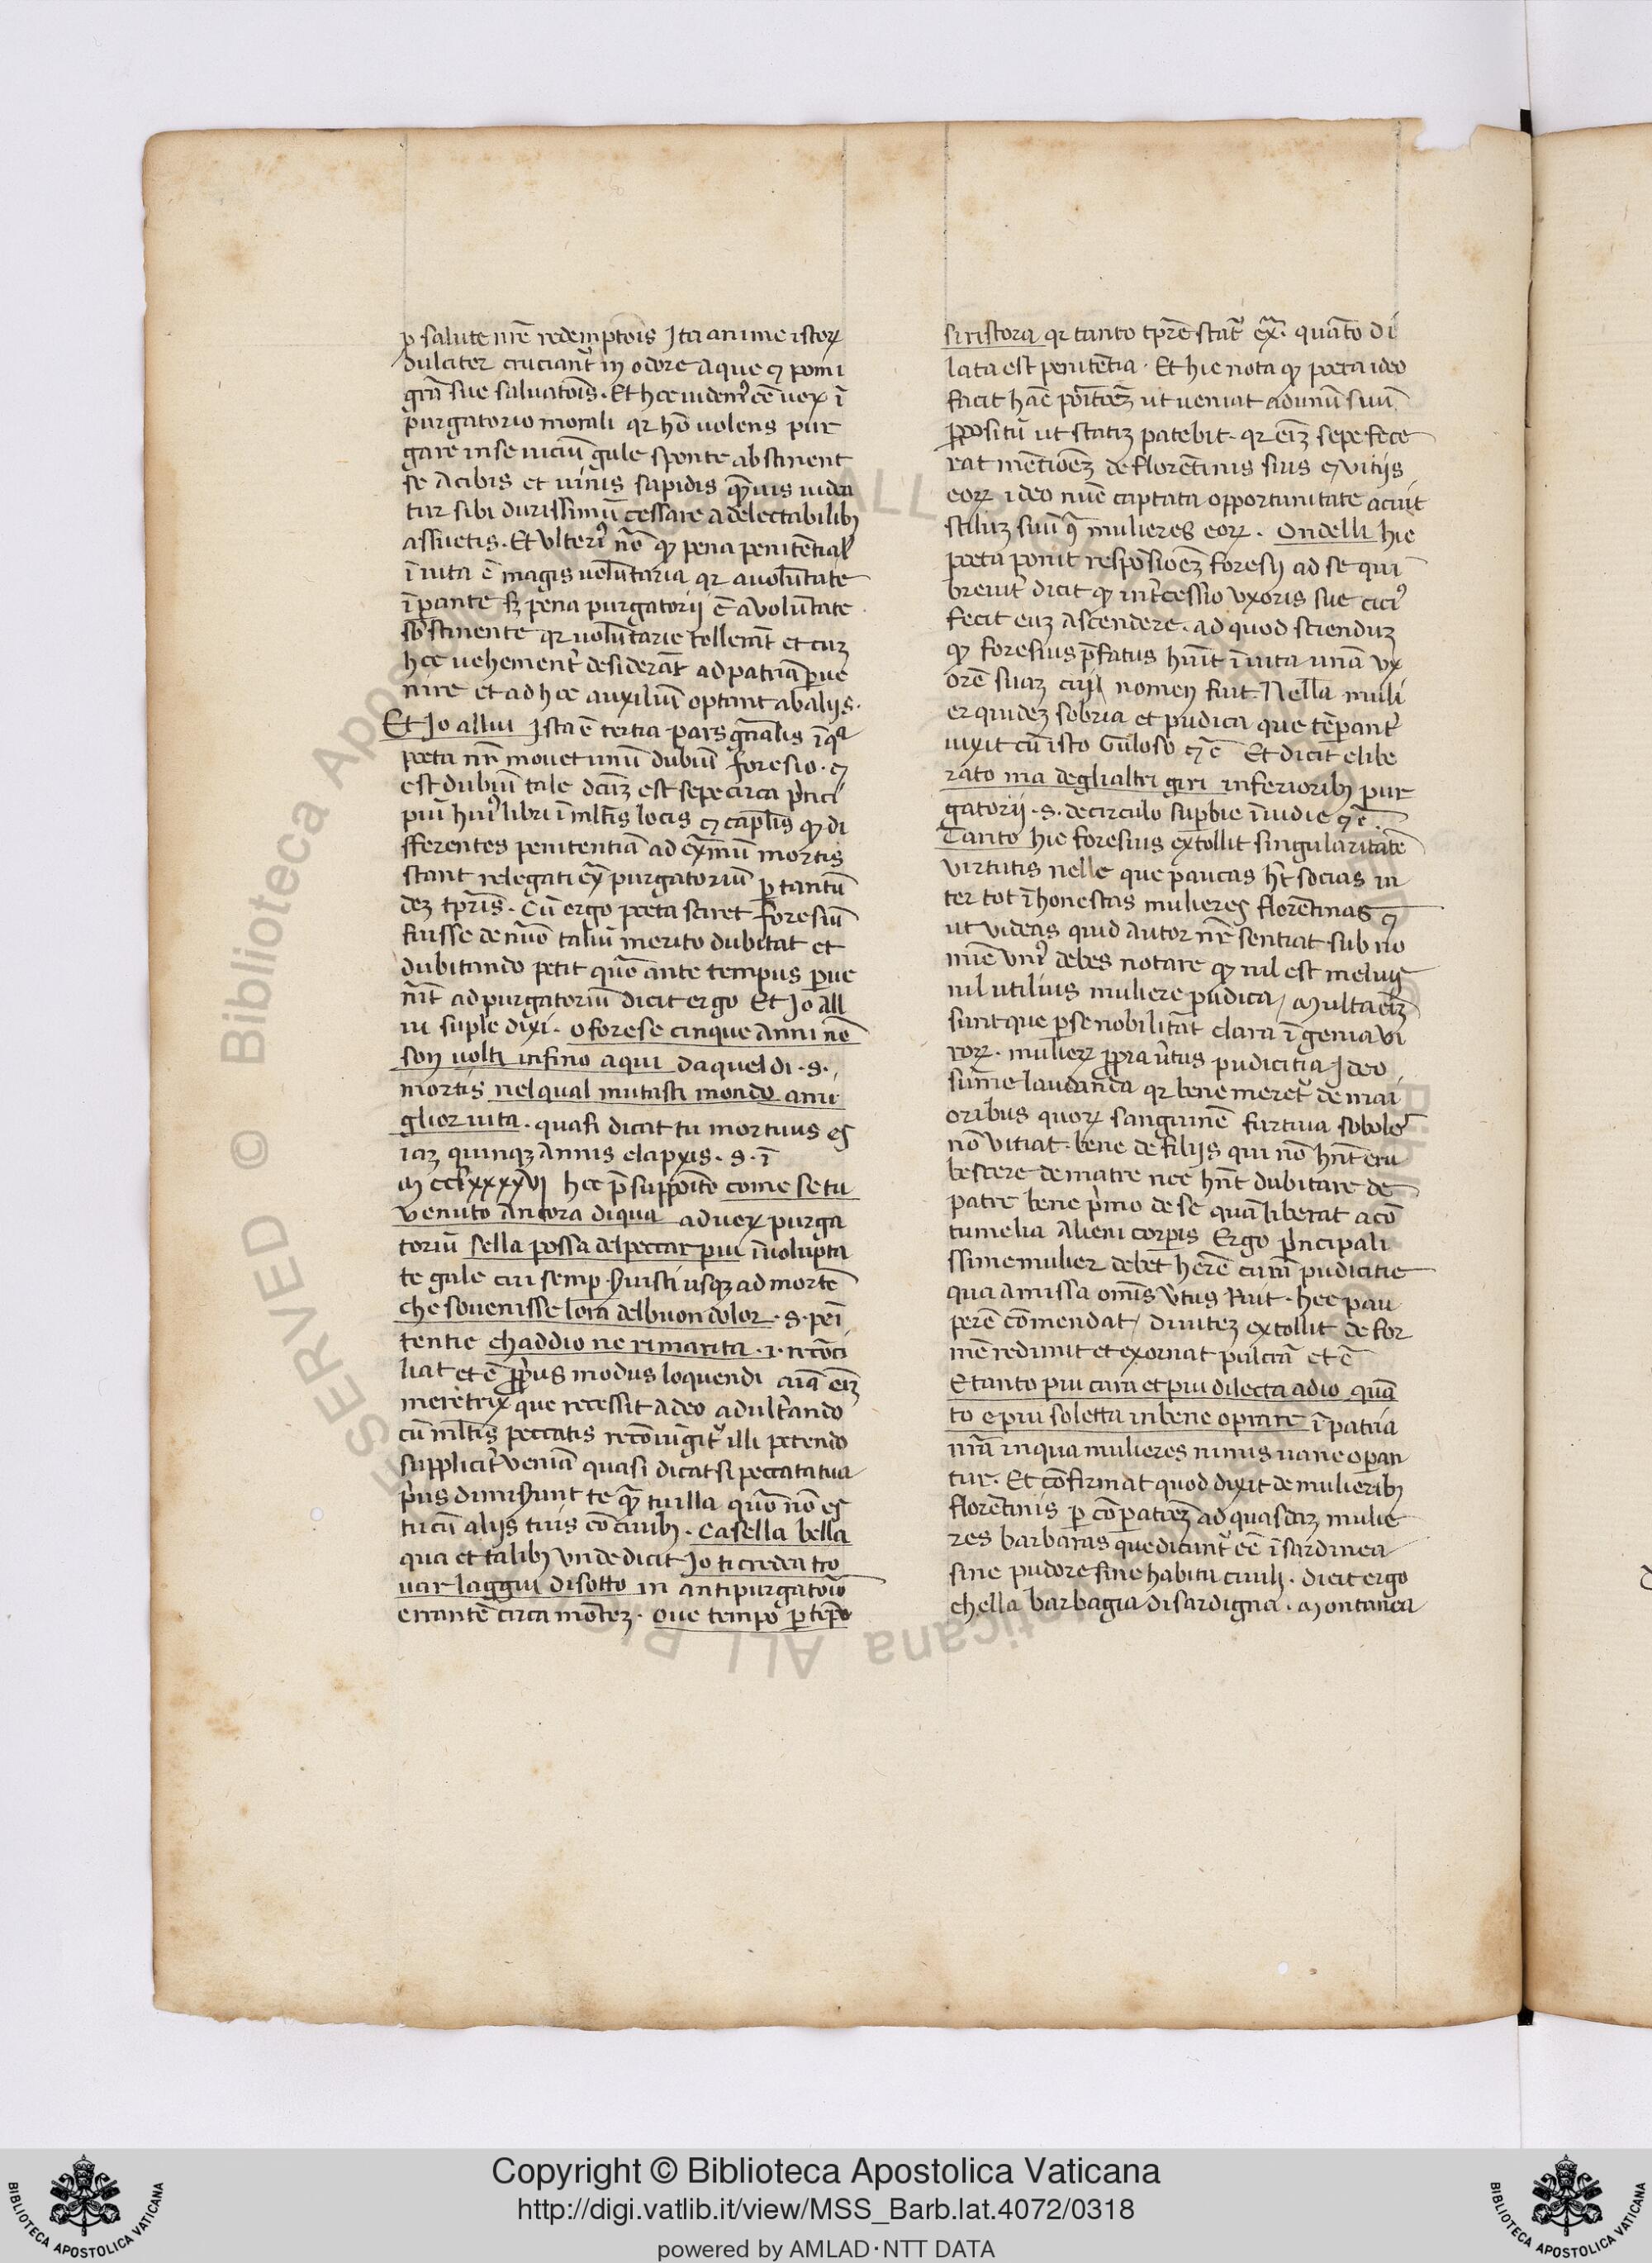 p salute nr̄e redemptoīs Ita anime istoꝝ
dulciter cruciant᷑ in odore aque ⁊ pomi
gr̄a sue saluatoīs. Et hoc uidem᷑ eē ueꝝ ī
purgatorio morali qr hō uolens pur
gare in se uiciū gule sponte abstinent
se a cibis et uinis sapidis qm̄uis uidea
tur sibi durissimū cessare a delectabilibꝫ
assuetis. Et ulteri᷒ nō qꝫ pena penitētial᷒
ī uita ē magis uolūtaria qr a uolūtate
īpante sꝫ pena purgatorij ē a uolūtate
sb̄stinente qr uolūtarie tollerāt et cuꝫ
hoc uehement᷑ desiderāt ad patriā ꝑue
nire et ad hoc auxiliū optant ab alijs.
Et Io allui Ista ē tertia pars gn̄alis ī qᵃ
poeta nr̄ mouet unū dubiū foresio. ⁊
est dubiū tale dc̄ūꝫ est sepe circa prīci
piū hui᷒ libri ī ml̄tis locis ⁊ capl̄is qꝫ di
fferentes penitentiā ad ex̄mū mortis
stant relegati ex̄ purgatoriū ꝑ tantū
deꝫ tꝑis. Cū ergo poeta sciret foresiū
fuisse de nūo taliū merito dubitat et
dubitando petit quō ante tempus ꝑue
nīt ad purgatoriū dicit ergo Et Io all
ui suple dixi. o forese cinque anni nō
son uolti infino a qui da quel di .s.
mortis nel qual mutasti mondo a mi
glior uita. quasi dicat tu mortuus es
iaꝫ quinqꝫ annis elapxis .s. ī
M cclxxxxvj hoc p̄suppoīto come se tu
venuto ancora di qua ad ueꝝ purga
toriū sella possa del peccar piu ī uolupta
te gule cui semp̄ ẜuisti usqꝫ ad mortē
che souenisse lora del buon dolor .s. peī
tentie chaddio ne rimarita .i. recōci
liat et ē ꝓprius modus loquendi aīa eīꝫ
meretrix que recessit a deo adult᷑ando
cū ml̄tis peccatis recōiūgit᷑ illi petendo
supplicit᷑ veniā quasi dicat si peccata tua
prius dimiẜunt te qm̄ tu illa quō nō es
tu cū alijs tuis cōciuibꝫ. Casella bella
qua et talibꝫ unde dicit Io ti credea tro
uar laggiu di sotto in antipurgatoīo
errantē circa mōteꝫ. oue tempo ꝑ tēpo
si ristora qr tanto tꝑe stat᷑ ex̄. quāto di
lata est penitētia. Et hic nota qꝫ poeta ideo
facit hāc poītōeꝫ ut ueniat ad unū suū
ꝓpositū ut statiꝫ patebit. qr eīꝫ sepe fece
rat mētiōeꝫ de florētinis suis ⁊ vitijs
eoꝝ ideo nūc captata opportunitate acuit
stiluꝫ suū ꝯ mulieres eoꝝ. Ondelli hic
poeta ponit respōsiōeꝫ foresij ad se qui
breuit᷑ dicit qꝫ int᷑cessio vxoris sue citi᷒
fecit euꝫ ascendere. ad quod sciendūꝫ
qꝫ foresius p̄fatus hūit ī uita unā vx
orē suaꝫ cuj᷒ nomen fuit Nella muli
er quideꝫ sobria et pudica que tēꝑant᷑
uixit cū isto Guloso ⁊ c̄ Et dicit e libe
rato ma degli altri giri inferioribꝫ pur
gatorij .s. de circulo suꝑbie ī uidie ⁊ c̄.
Tanto hic foresius extollit singularitātē
virtutis nelle que paucas hȳt socias in
ter tot īhonestas mulieres florētinas ⁊
ut videas quid autor nr̄ sentiat sub no
mīe uni᷒ debes notare qꝫ nil est melius
nil utilius muliere pudica / Multa eīꝫ
sunt que ꝑ se nobilitāt clara īgenia vi
roꝝ. mulieꝝ ꝓpria v᷑tus pudicitia Ideo
sūme laudanda qr bene meret᷑ de mai
oribus quoꝝ sanguinē furtiua sobole
nō vitiat. bene de filijs qui nō hn̄t eru
bescere de matre nec hn̄t dubitare de
patre bene prīmo de se quā liberat a cō
tumelia alieni corꝑis Ergo prīncipali
ssime mulier debet hērē curā pudicitie
qua amissa omīs v᷑tus Ruit. hec pau
perē cōmendat / diuiteꝫ extollit defor
mē redimit et exornat pulcrā et c̄
E tanto piu cara et piu dilecta a dio quā
to e piu soletta in bene oprare ī patria
nr̄a in qua mulieres nimis uane oꝑan
tur. Et cōfirmat quod dixit de mulieribꝫ
florētinis ꝑ cōꝑatiōeꝫ ad quasdaꝫ mulie
res barbaras que dicunt᷑ eē ī sardinea
sine pudore sine habitu ciuilj. dicit ergo
chella barbagia di sardigna. Montanea
Copyright © Biblioteca Apostolica Vaticana
http://digi.vatlib.it/view/MSS_Barb.lat.4072/0318
powered by AMLAD·NTT DATA